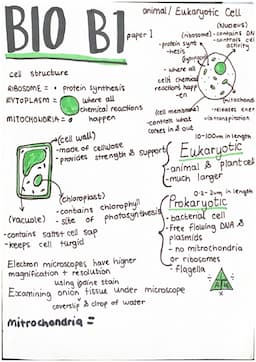 BIO B1
paper 1
animal/Eukaryotic Cell
(NUCLEUS)
- contains DNA
- controls cell
activity
(ribosome)
- protein synt
- hesis
- where all
cells chemical
reactions happ
- en
(cell membrane)
- controls what
comes in & out
cell structure
RIBOSOME = • protein synthesis
CYTOPLASM = where all
chemical reactions
happen
MITOCHONDRIA =
(cell wall)
- made of cellulose
- provides strength & support
(chloroplast)
- contains chlorophyll
- site of photosynthesis
(Vacuole)
- contains salts + cell sap
- keeps cell turgid
10-100um in length
Eukaryotic
- animal & plant cell
- much larger
in length
Prokaryotic
- bacterial cell
- free flowing DNA &
plasmids
- no mitochondria
or ribosomes
- flagella
Electron microscopes have higher
magnification + resolution
using iodine stain
Examining onion tissue under microscope
coverslip & drop of water
Mitrochondria =